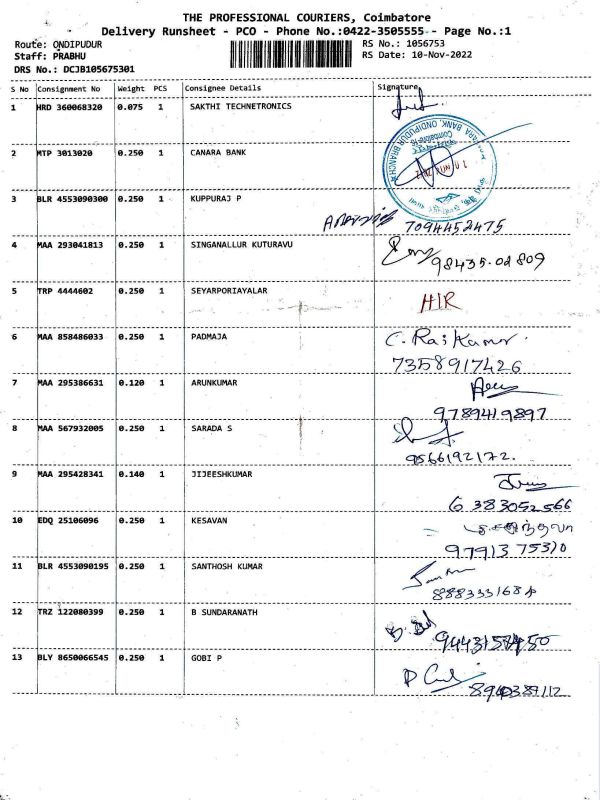 THE PROFESSIONAL COURIERS, Coimbatore
Delivery Runsheet - PCO - Phone No.:0422-3505555 - Page No.:1
Route: ONDIPUDUR
RS No.: 1056753
Staff: PRABHU
RS Date: 10-Nov-2022
DRS No.: DCJB105675301
S No Consignment No Weight PCS Consignee Details Signature
1 HRD 360068320 0.075 1 SAKTHI TECHNETRONICS
2 MTP 3013020 0.250 1 CANARA BANK
3 BLR 4553090300 0.250 1 KUPPURAJ P
7094452475
4 MAA 293041813 0.250 1 SINGANALLUR KUTURAVU
98435-02809
5 TRP 4444602 0.250 1 SEYARPORIAYALAR
HIR
6 MAA 858486033 0.250 1 PADMAJA
C. Rajkumar
7358917426
7 MAA 295386631 0.120 1 ARUNKUMAR
9789419897
8 MAA 567932005 0.250 1 SARADA S
9566192172.
9 MAA 295428341 0.140 1 JIJEESHKUMAR
6383052566
10 EDQ 25106096 0.250 1 KESAVAN
97913 75310
11 BLR 4553090195 0.250 1 SANTHOSH KUMAR
12 TRZ 122080399 0.250 1 B SUNDARANATH
13 BLY 8650066545 0.250 1 GOBI P